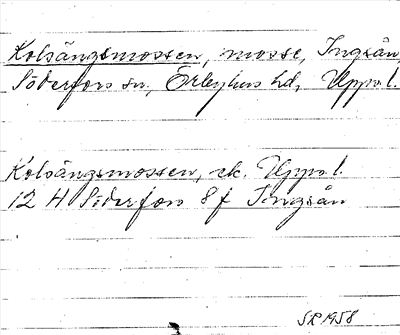 Kolsängsmossen, mosse, Ingsån,
Söderfors sn., Örbyhus hd, Upps. l.
Kolsängsmossen, ek. Upps. l.
12 H Söderfors 8 f Ingsån
SR 1958